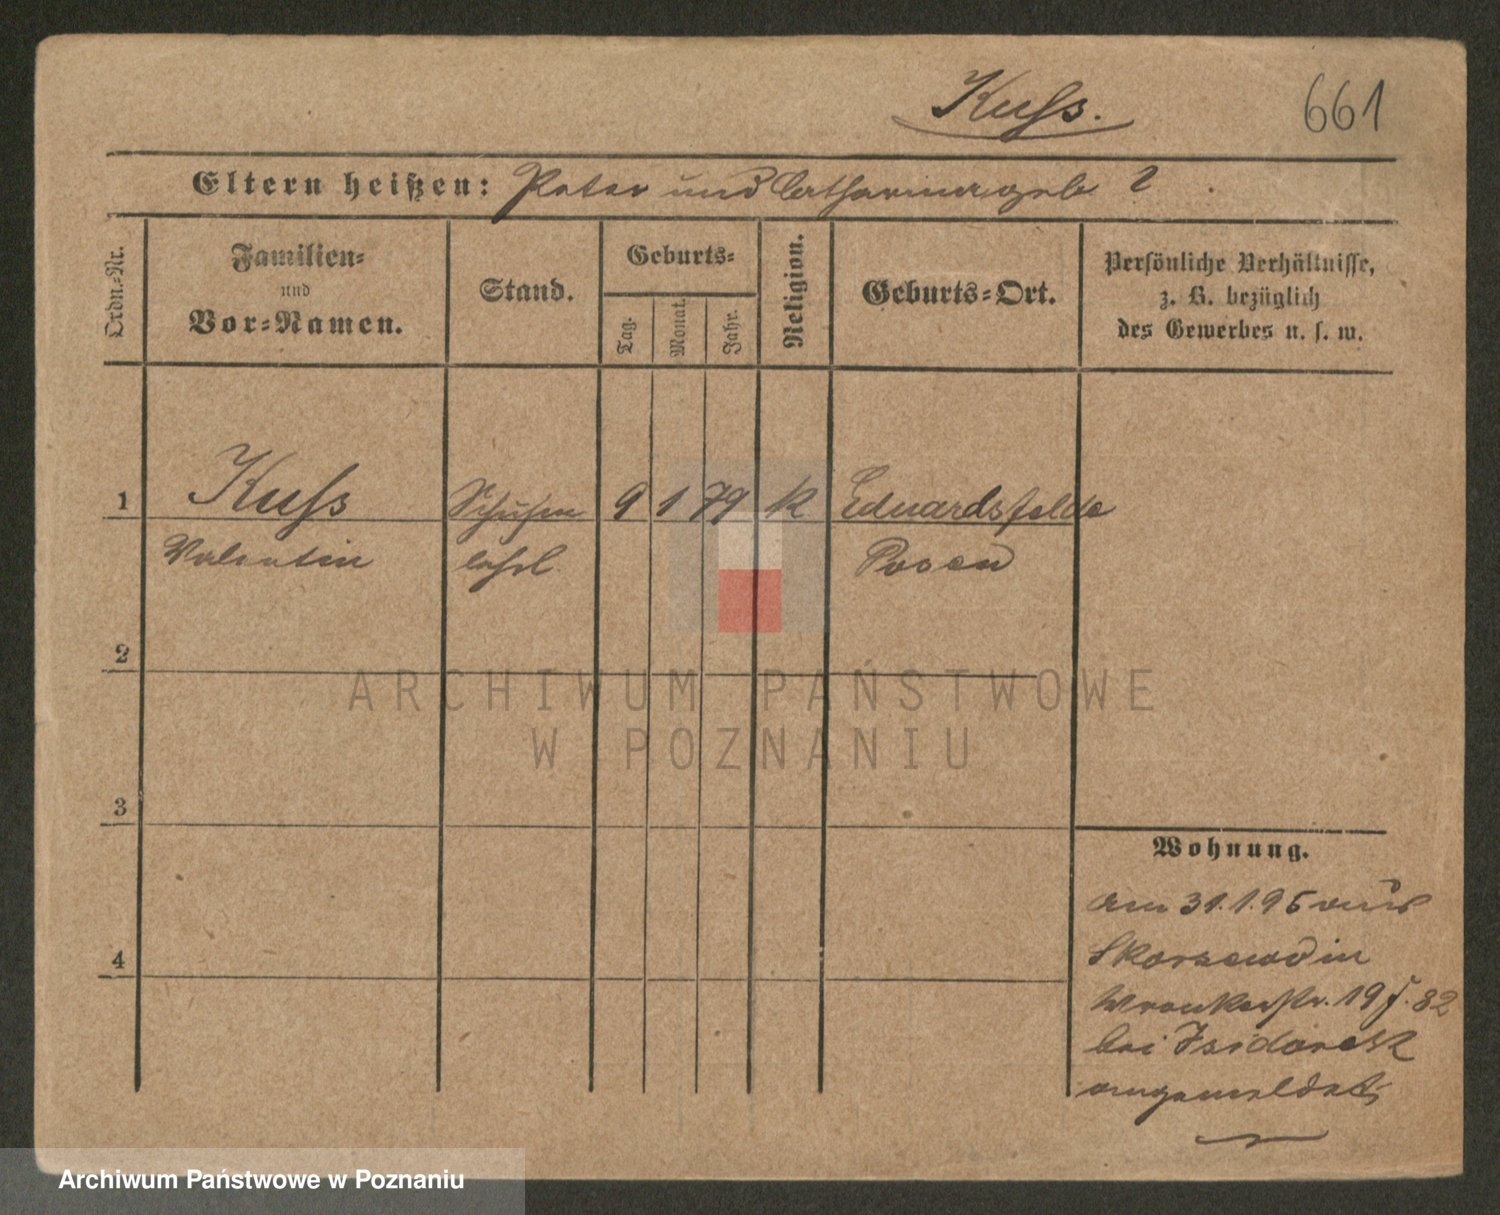 Kuss.
661
Eltern heißen: Peter und Catharina geb ?
Ordn.-Nr.
Familien-
und
Vor-Namen.
Stand.
Geburts-
Tag.
Monat.
Jahr.
Religion.
Geburts-Ort.
Persönliche Verhältnisse,
z. B. bezüglich
des Gewerbes u. s. w.
1
Kuss
Schuhm
9 1 79 k
Eduardsfelde
Valentin
lehrl
Posen
2
ARCHIWUM PAŃSTWOWE
W POZNANIU
3
Wohnung.
am 31.1.95 aus
4
Skorzewo in
Wronkerstr. 19 f. 82
bei Isidorek
angemeldet
Archiwum Państwowe w Poznaniu